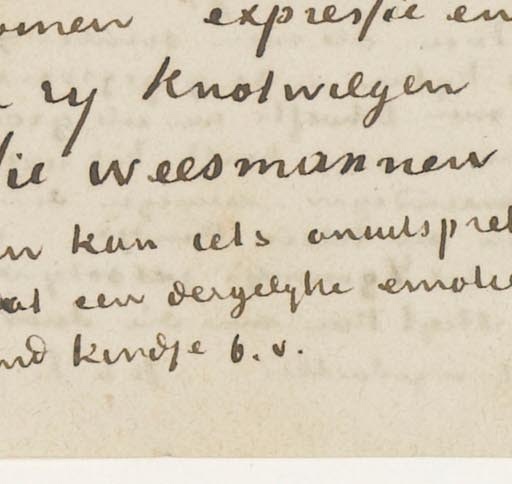 omen expressie en
ry knotwilgen
sie weesmannen
en kan iets onuitspre
at een dergelyke emotie
nd kindje b.v.